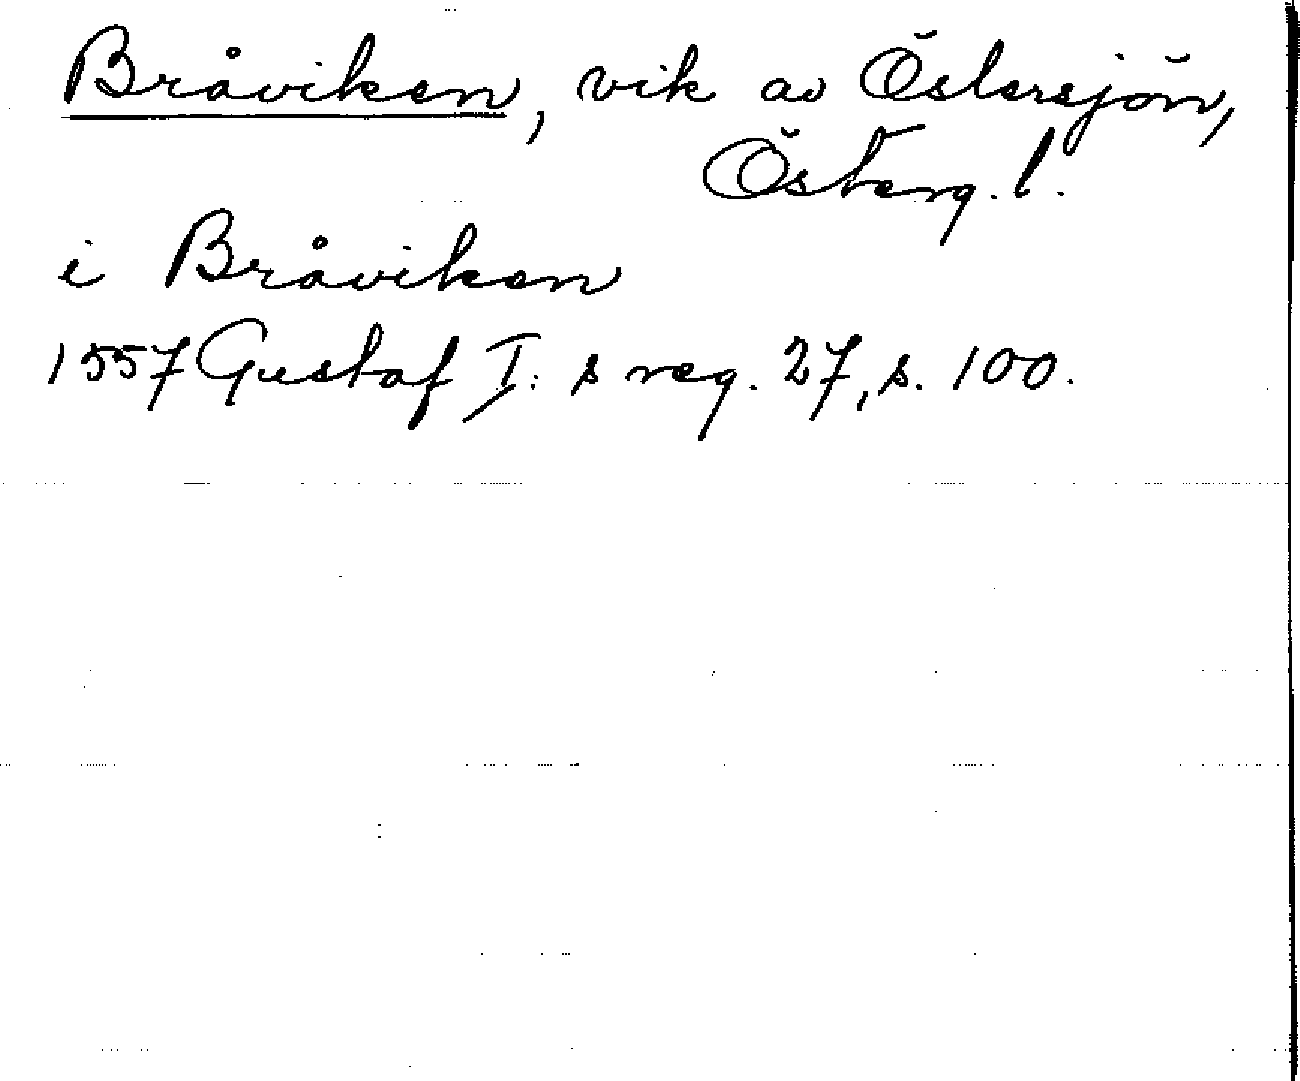 Bråviken, vik av Östersjön,
Österg. l.
i Bråviken
1557 Gustaf I: s reg. 27, s. 100.